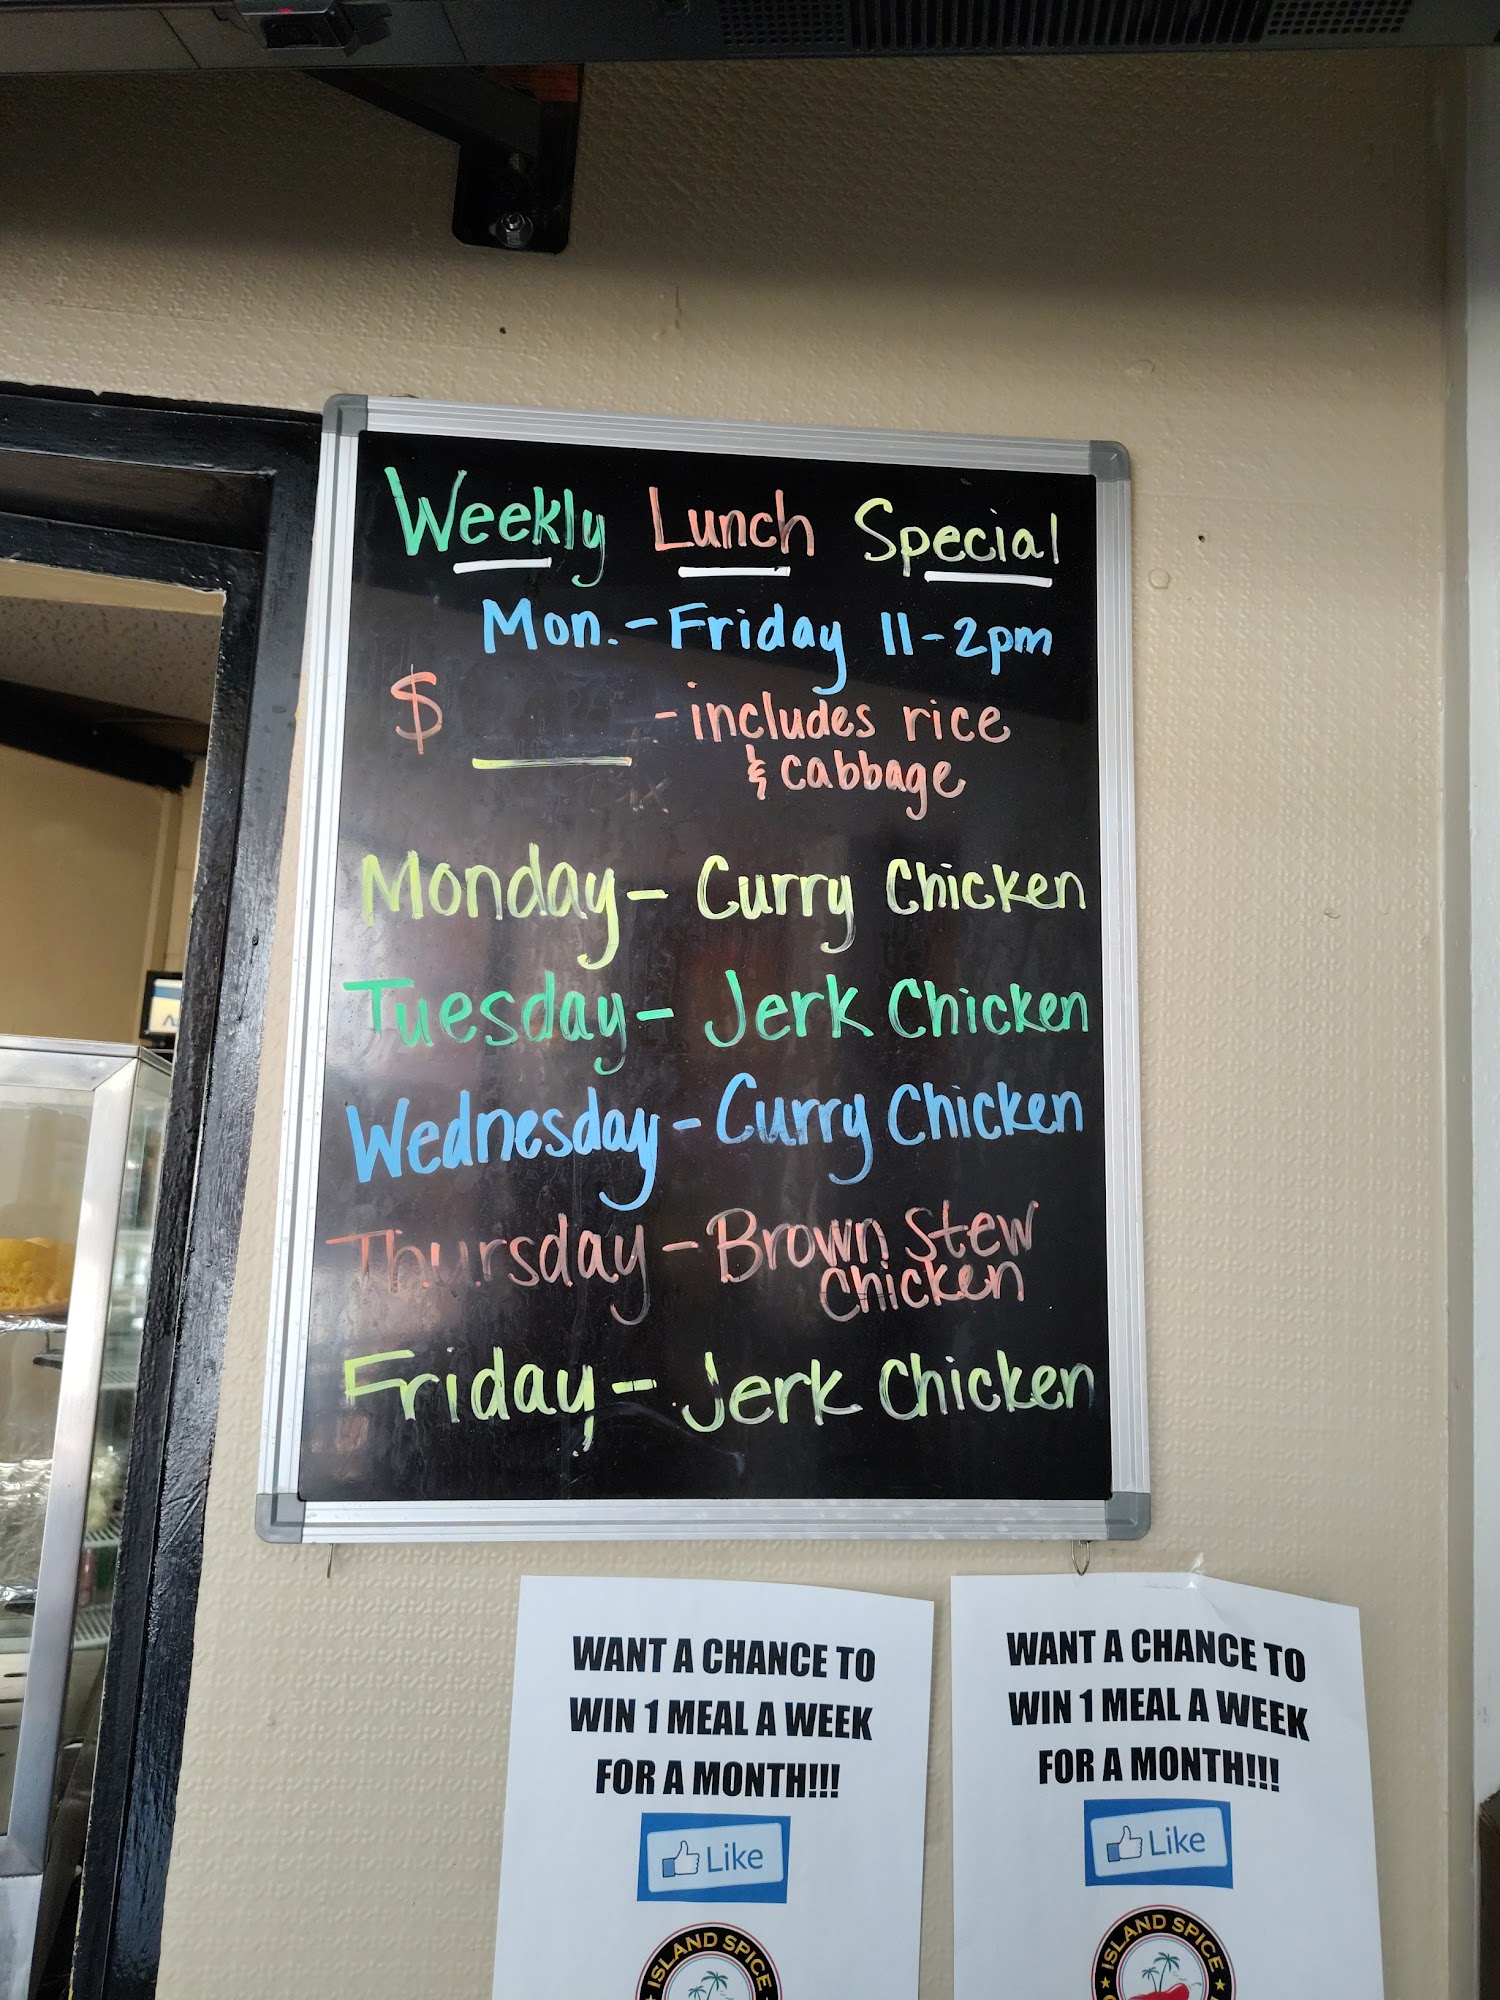 Weekly Lunch Special
Mon. - Friday 11-2pm
$ - includes rice
& cabbage
Monday - Curry Chicken
Tuesday - Jerk Chicken
Wednesday - Curry Chicken
Thursday - Brown Stew
Chicken
Friday - Jerk Chicken
WANT A CHANCE TO
WIN 1 MEAL A WEEK
FOR A MONTH!!!
Like
ISLAND SPICE
WANT A CHANCE TO
WIN 1 MEAL A WEEK
FOR A MONTH!!!
Like
ISLAND SPICE